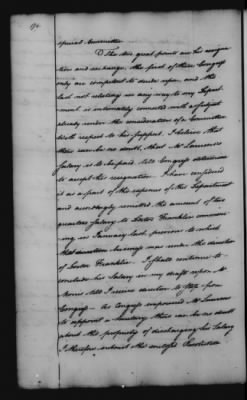 special Committee
The two great points are his resigna
tion and exchange, the first of these Congress
only are competent to decide upon and the
last not relating in any way to my Depart-
ment is intimately connected with a subject
already under the consideration of a Committee
With respect to his support. I believe that
there can be no doubt, that Mr Laurens's
Salary is to be paid till Congress determine
to accept his resignation. I have considered
it as a part of the expence of this Department
and accordingly remitted the amount of two
quarters Salary to Doctor Franklin commenc-
ing in January last, previous to which
this business was under the direction
of Doctor Franklin. I shall continue to
include his Salary in my draft upon Mr
Morris till I receive direction to stop from
Congress. As Congress empowered Mr Laurens
to appoint a Secretary there can be no doubt
about the propriety of discharging his Salary
I therefore submit this Resolution